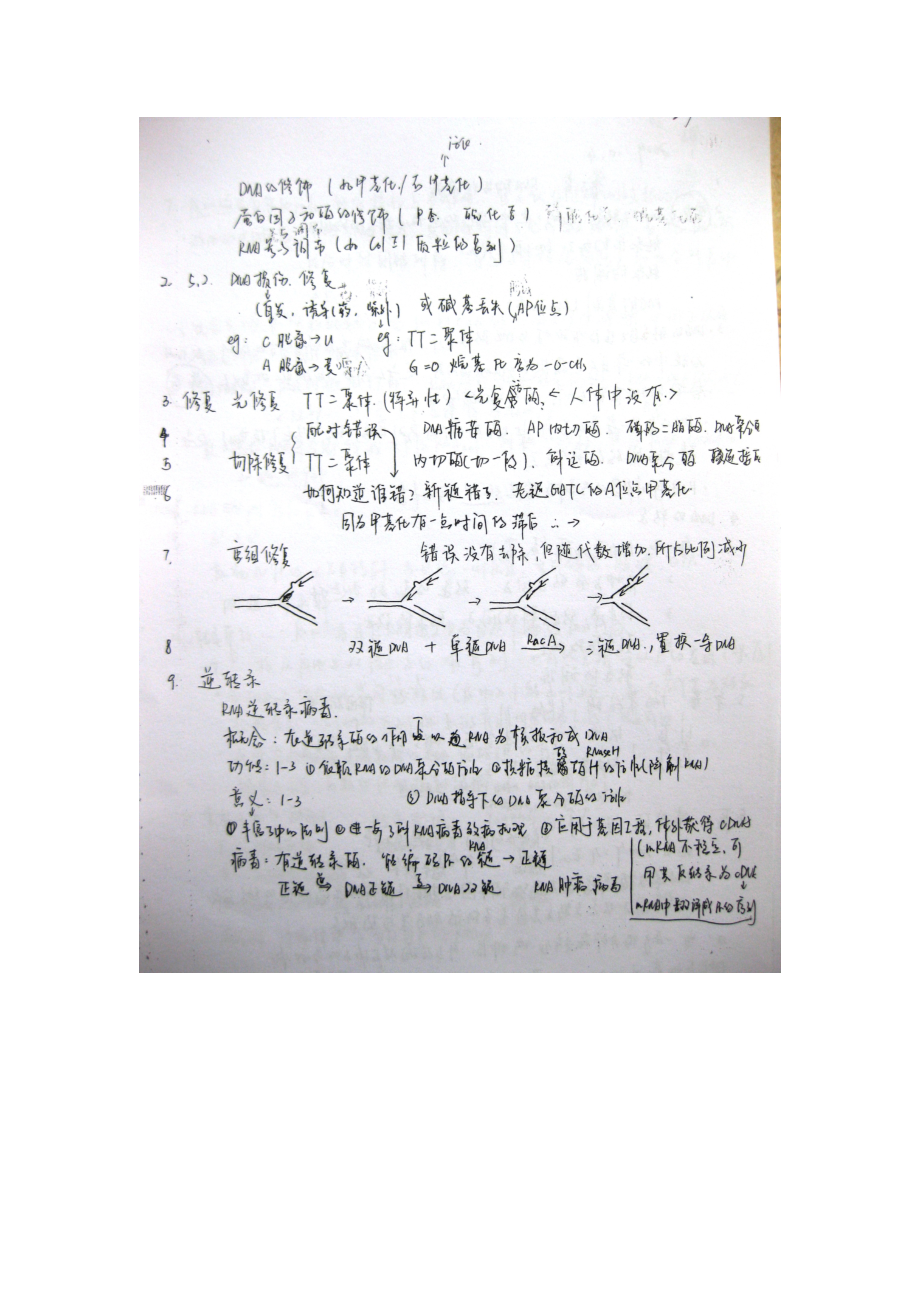 活化
↑
DNA的修饰 (如甲基化/去甲基化)
蛋白因子和酶的修饰 (
RNA参与调节 (如ColE1质粒的复制)
2. 5.2. DNA损伤. 修复
(自发, 诱导 ) 或碱基丢失 (AP位点)
eg: C 脱氨→U eg: TT二聚体
A 脱氨→ G=O 烷基化变为-O-CH₃
3. 修复 光修复 TT二聚体. (特异性) <光复合酶. < 人体中没有.>
4 配对错误 DNA糖苷酶. AP内切酶. 磷酸二酯酶. DNA聚合
5 切除修复 TT二聚体 内切酶(切一段). 外切酶. DNA聚合酶 接
6 如何知道谁错? 新链错了. 老链GATC的A位点甲基化
因为甲基化有一点时间的滞后 ∴→
7. 重组修复 错误没有去除, 但随代数增加, 所占比例减少
→ → →
8 双链DNA + 单链DNA RecA→ 三链DNA, 置换一条DNA
9. 逆转录
RNA逆转录病毒.
概念: 在逆转录酶的作用下以 RNA为模板合成DNA
功能: 1-3 ①依赖RNA的DNA聚合酶活性 ②核糖核酸酶H的活性(降解RNA) RNaseH
意义: 1-3 ③DNA指导下的DNA聚合酶的活性
①丰富了中心法则 ②进一步了解RNA病毒致病机理 ③应用于基因工程, 体外获得cDNA
病毒: 有逆转录酶. RNA 链→正链 (mRNA不稳定, 可
正链 → DNA正链 → DNA双链 RNA肿瘤病毒 用其反转录为cDNA
mRNA中 的序列